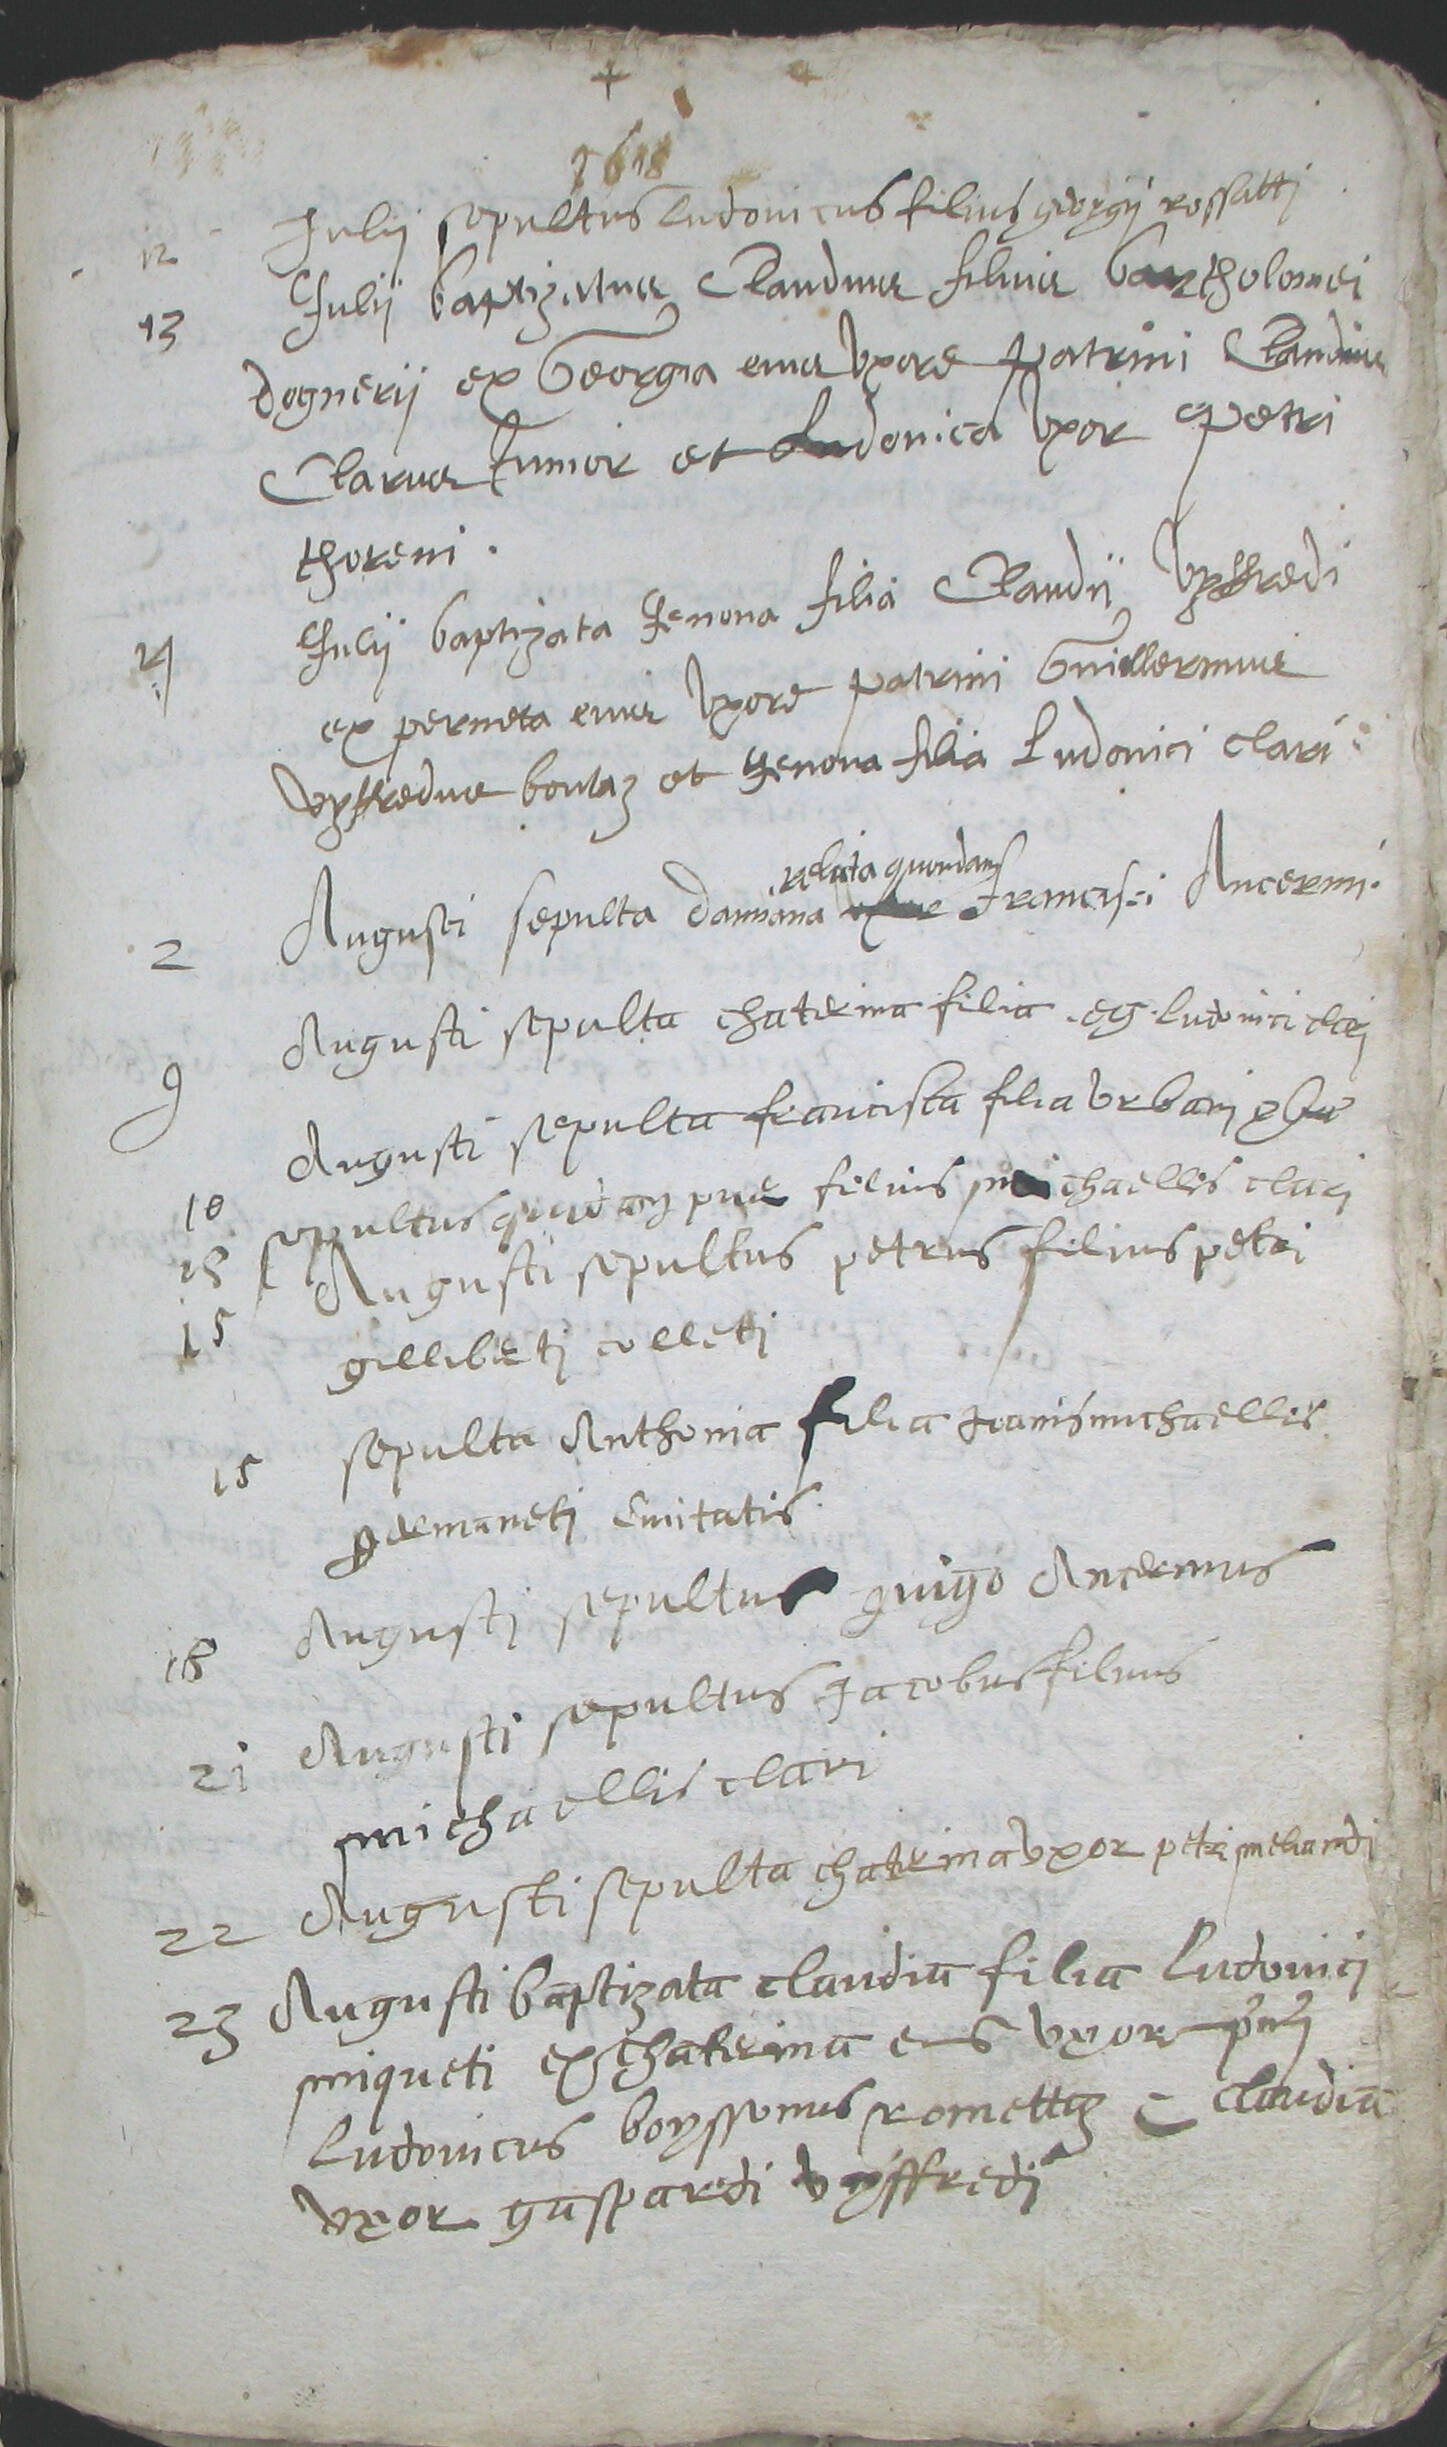 1618
12 Julij sepultus ludovicus filius georgij rossatti
13 Julij baptizatus Claudius filius bartholomei
dognerij ex Georgia eius Uxore patrini Claudius
Clarus Junior et Ludovica Uxor Petri
thoreni.
Julij baptizata Jenona filia Claudij Uyffredi
ex perneta eius Uxore patrini Guillermus
Uyffredus boutaz et Jenona filia Ludovici clari
relicta quondam
2 Augusti sepulta damiana francisci Ancermi.
9 Augusti sepulta chaterina filia eg. ludovici clarj
10 Augusti sepulta francisca filia Urbani
15 sepultus quidam puer filius michaellis clarj
15 Augusti sepultus petrus filius petri
gilliberti colletj
15 sepulta Anthonia filia Joanis michaellis
germanetj Civitatis.
18 Augusti sepultus guigo Ancermus
21 Augusti sepultus Jacobus filius
michaellis clari
22 Augusti sepulta chaterina Uxor petri meliandi
23 Augusti baptizata claudia filia Ludovicj
miqueti ex chaterina eius Uxor
Ludovicus boyssonus romettaz claudia
Uxor gaspardi Uyffredj